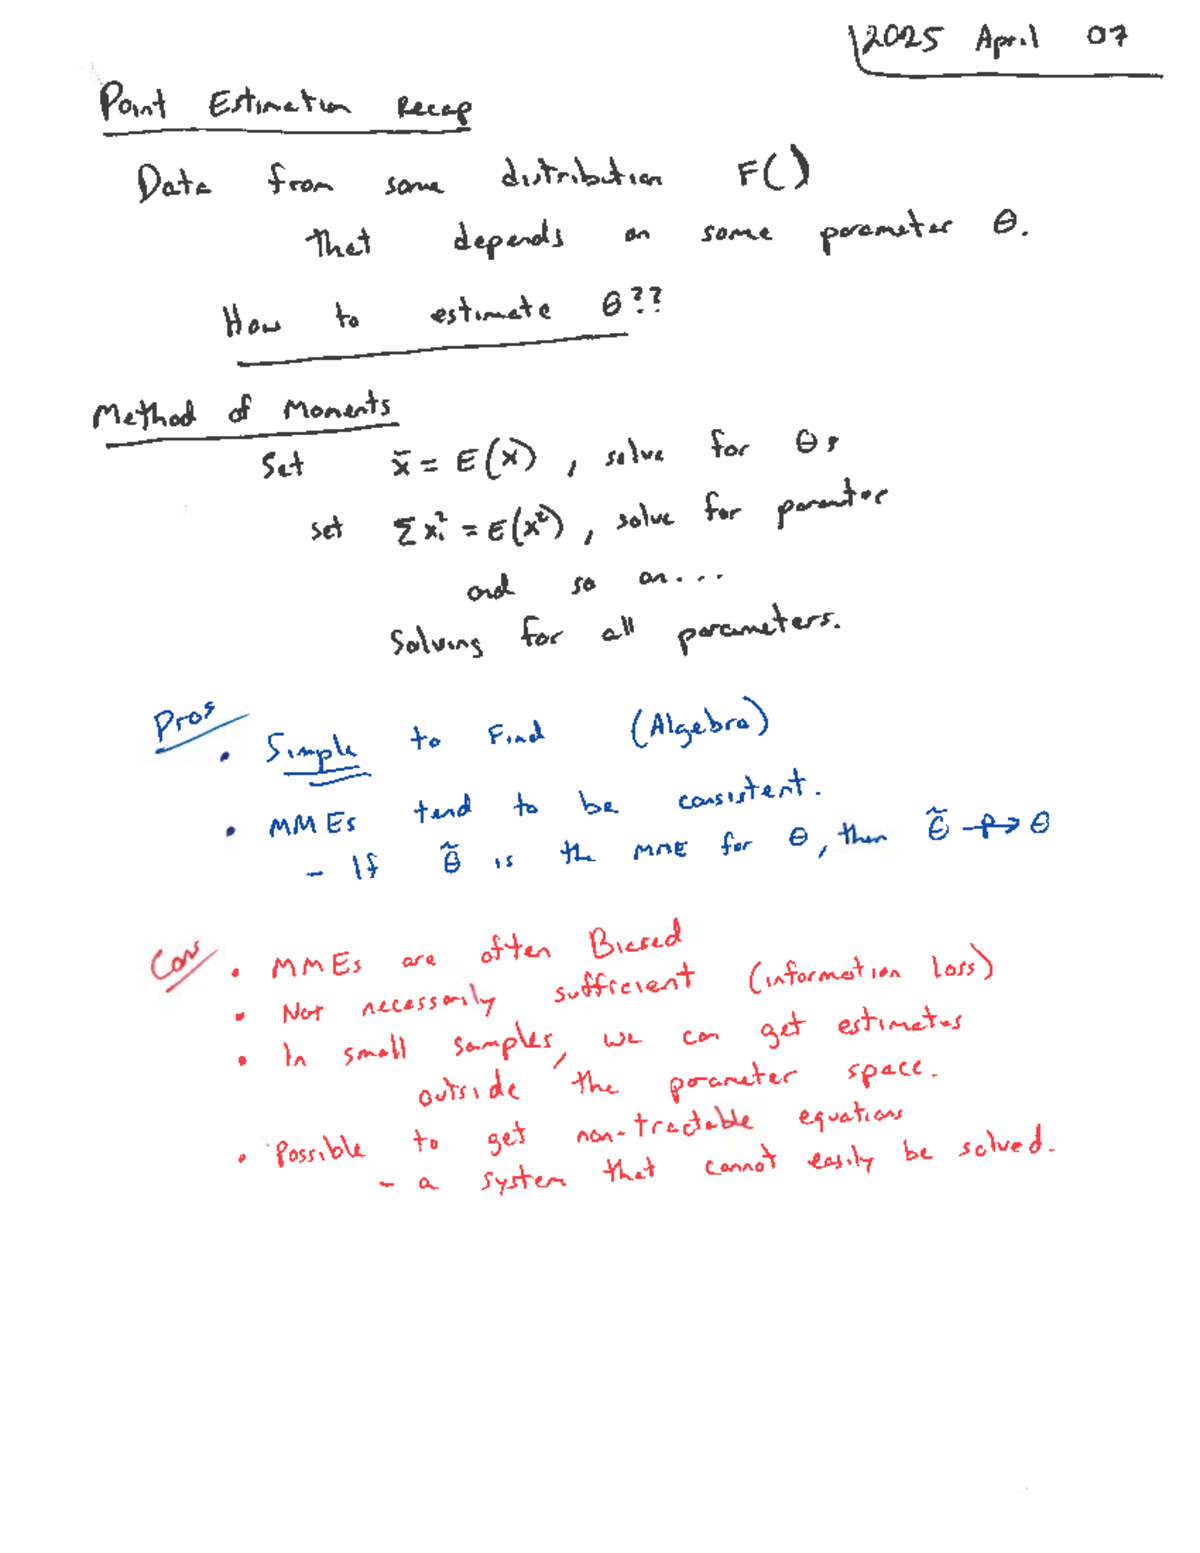 2025 April 07
Point Estimation Recap
Data from some distribution F()
that depends on some parameter θ.
How to estimate θ??
Method of Moments
Set x̄ = E(x), solve for θ,
set Σxᵢ² = E(x²), solve for paramter
and so on...
Solving for all parameters.
Pros
• Simple to Find (Algebra)
• MMEs tend to be consistent.
- If θ̃ is the MME for θ, then θ̃ -P-> θ
Cons
• MMEs are often Biased
• Not necessarily sufficient (information loss)
• In small samples, we can get estimates
outside the parameter space.
• Possible to get non-tractable equations
- a system that cannot easily be solved.